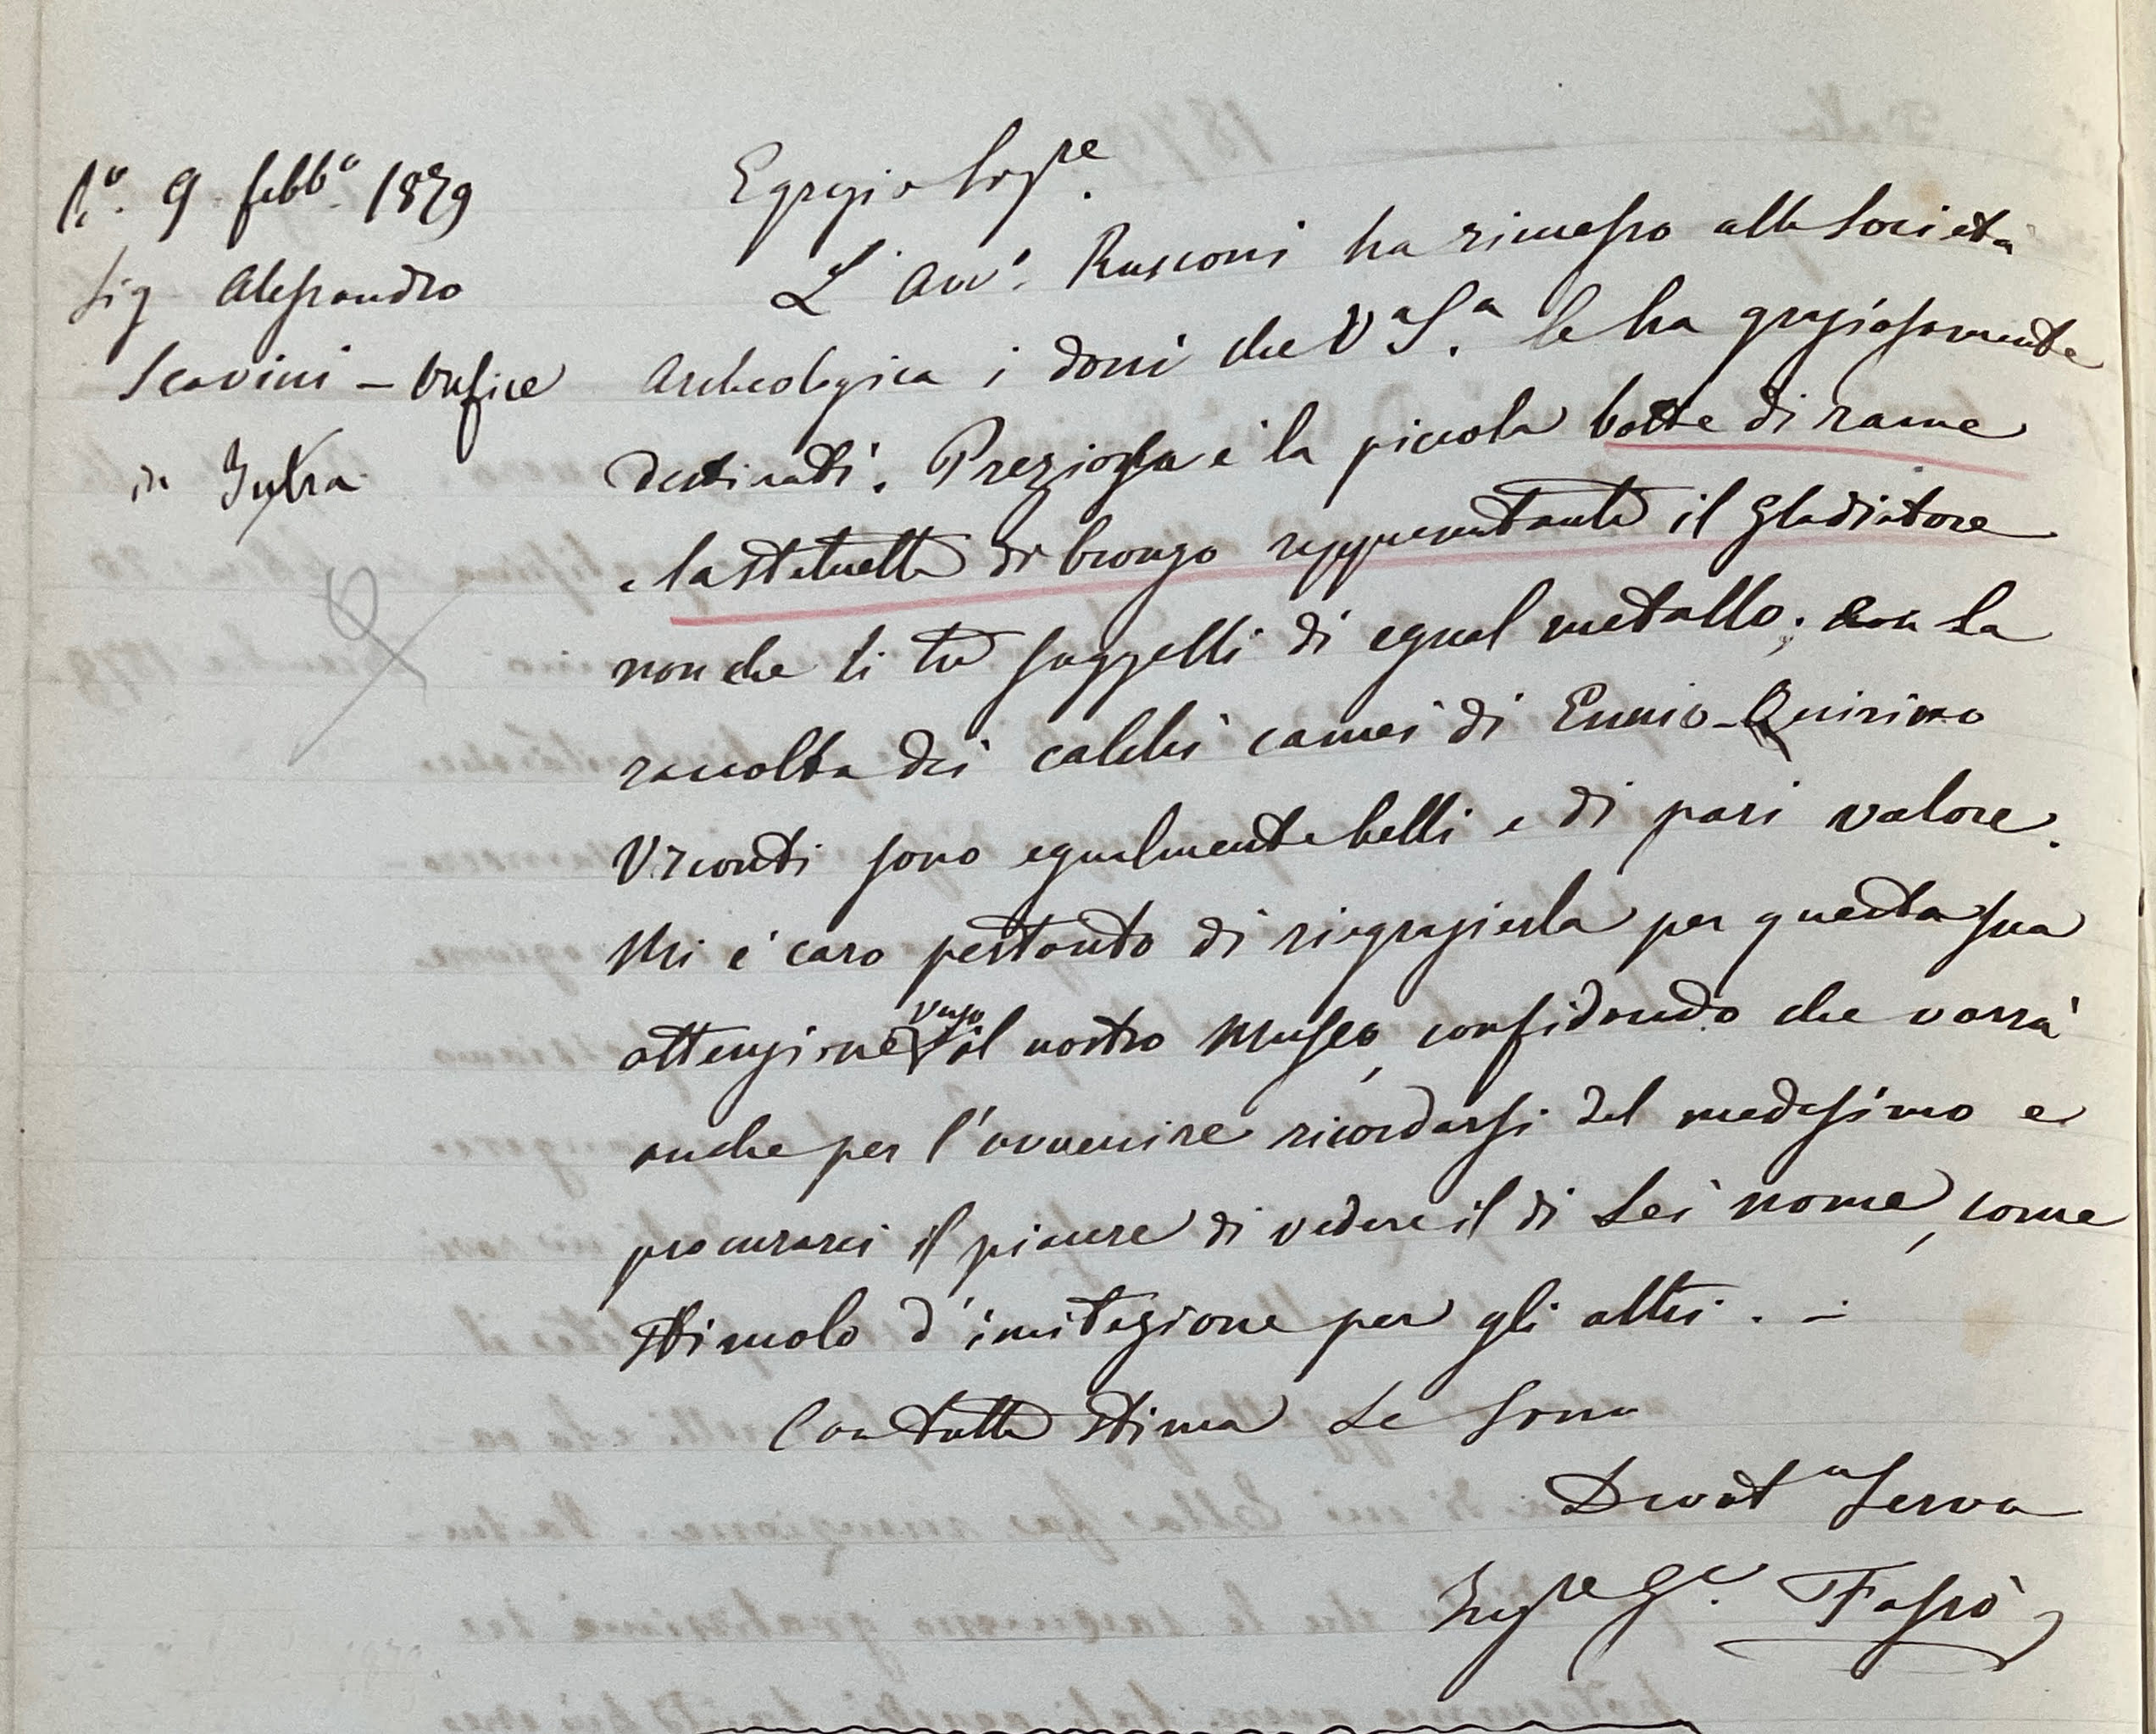 1.º 9 febb.º 1879
Sig Alessandro
Scavini – Orefice
in Intra
Egregio Sig.re
L'Avv.º Rusconi ha rimesso alla Società
Archeologica i doni che V.a S.a le ha graziosamente
destinati. Preziosa è la piccola botte di rame
e la statuetta di bronzo rappresentante il gladiatore
nonchè li tre suggelli di egual metallo; con la
raccolta dei calchi camei di Ennio-Quirino
Visconti sono egualmente belli e di pari valore.
Mi è caro pertanto di ringraziarla per questa sua
attenzione verso il nostro Museo, confidando che vorrà
anche per l'avvenire ricordarsi del medesimo e
procurarci il piacere di vedere il di Lei nome, come
stimolo d'imitazione per gli altri. –
Con tutta stima Le sono
Devot.o Servo
Ing.re G.e Fassò